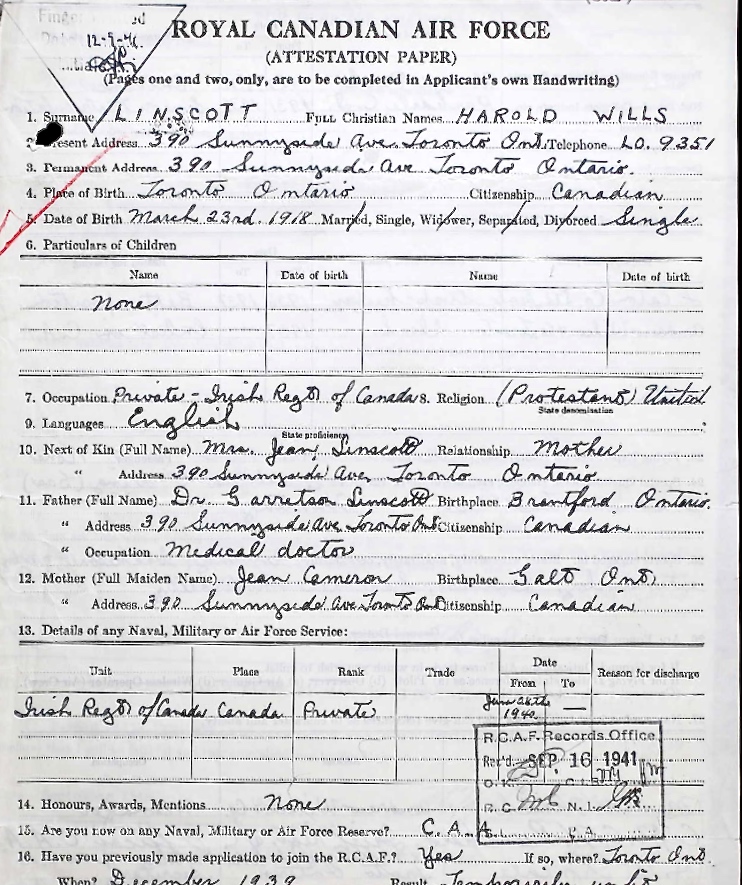 12-9-41
ROYAL CANADIAN AIR FORCE
(ATTESTATION PAPER)
(Pages one and two, only, are to be completed in Applicant's own Handwriting)
1. Surname LINSCOTT Full Christian Names HAROLD WILLS
2. Present Address 390 Sunnyside Ave. Toronto Ont. Telephone LO. 9351
3. Permanent Address 390 Sunnyside Ave Toronto Ontario.
4. Place of Birth Toronto Ontario Citizenship Canadian
5. Date of Birth March 23rd. 1918 Married, Single, Widower, Separated, Divorced Single
6. Particulars of Children
Name Date of birth Name Date of birth
None
7. Occupation Private - Irish Regt of Canada 8. Religion (Protestant) United
State denomination
9. Languages English
State proficiency
10. Next of Kin (Full Name) Mrs. Jean Linscott Relationship Mother
" Address 390 Sunnyside Ave Toronto Ontario
11. Father (Full Name) Dr. Garretson Linscott Birthplace Brantford Ontario.
" Address 390 Sunnyside Ave Toronto Ont Citizenship Canadian
" Occupation Medical doctor
12. Mother (Full Maiden Name) Jean Cameron Birthplace Galt Ont.
" Address 390 Sunnyside Ave Toronto Ont Citizenship Canadian
13. Details of any Naval, Military or Air Force Service:
Unit Place Rank Trade Date Reason for discharge
From To
Irish Regt of Canada Canada Private 1940. —
R.C.A.F. Records Office
Rec'd. SEP 16 1941
14. Honours, Awards, Mentions None
15. Are you now on any Naval, Military or Air Force Reserve? C.A.A.
16. Have you previously made application to join the R.C.A.F.? Yes If so, where? Toronto Ont.
When? December 1939 Result Temporarily unfit